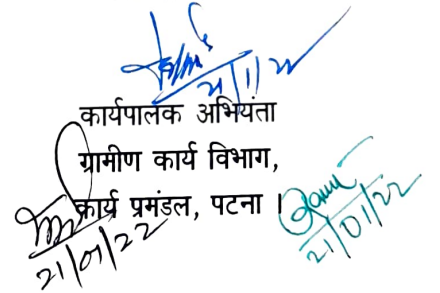 21/1/22
कार्यपालक अभियंता
ग्रामीण कार्य विभाग,
कार्य प्रमंडल, पटना ।
21/01/22
21/01/22